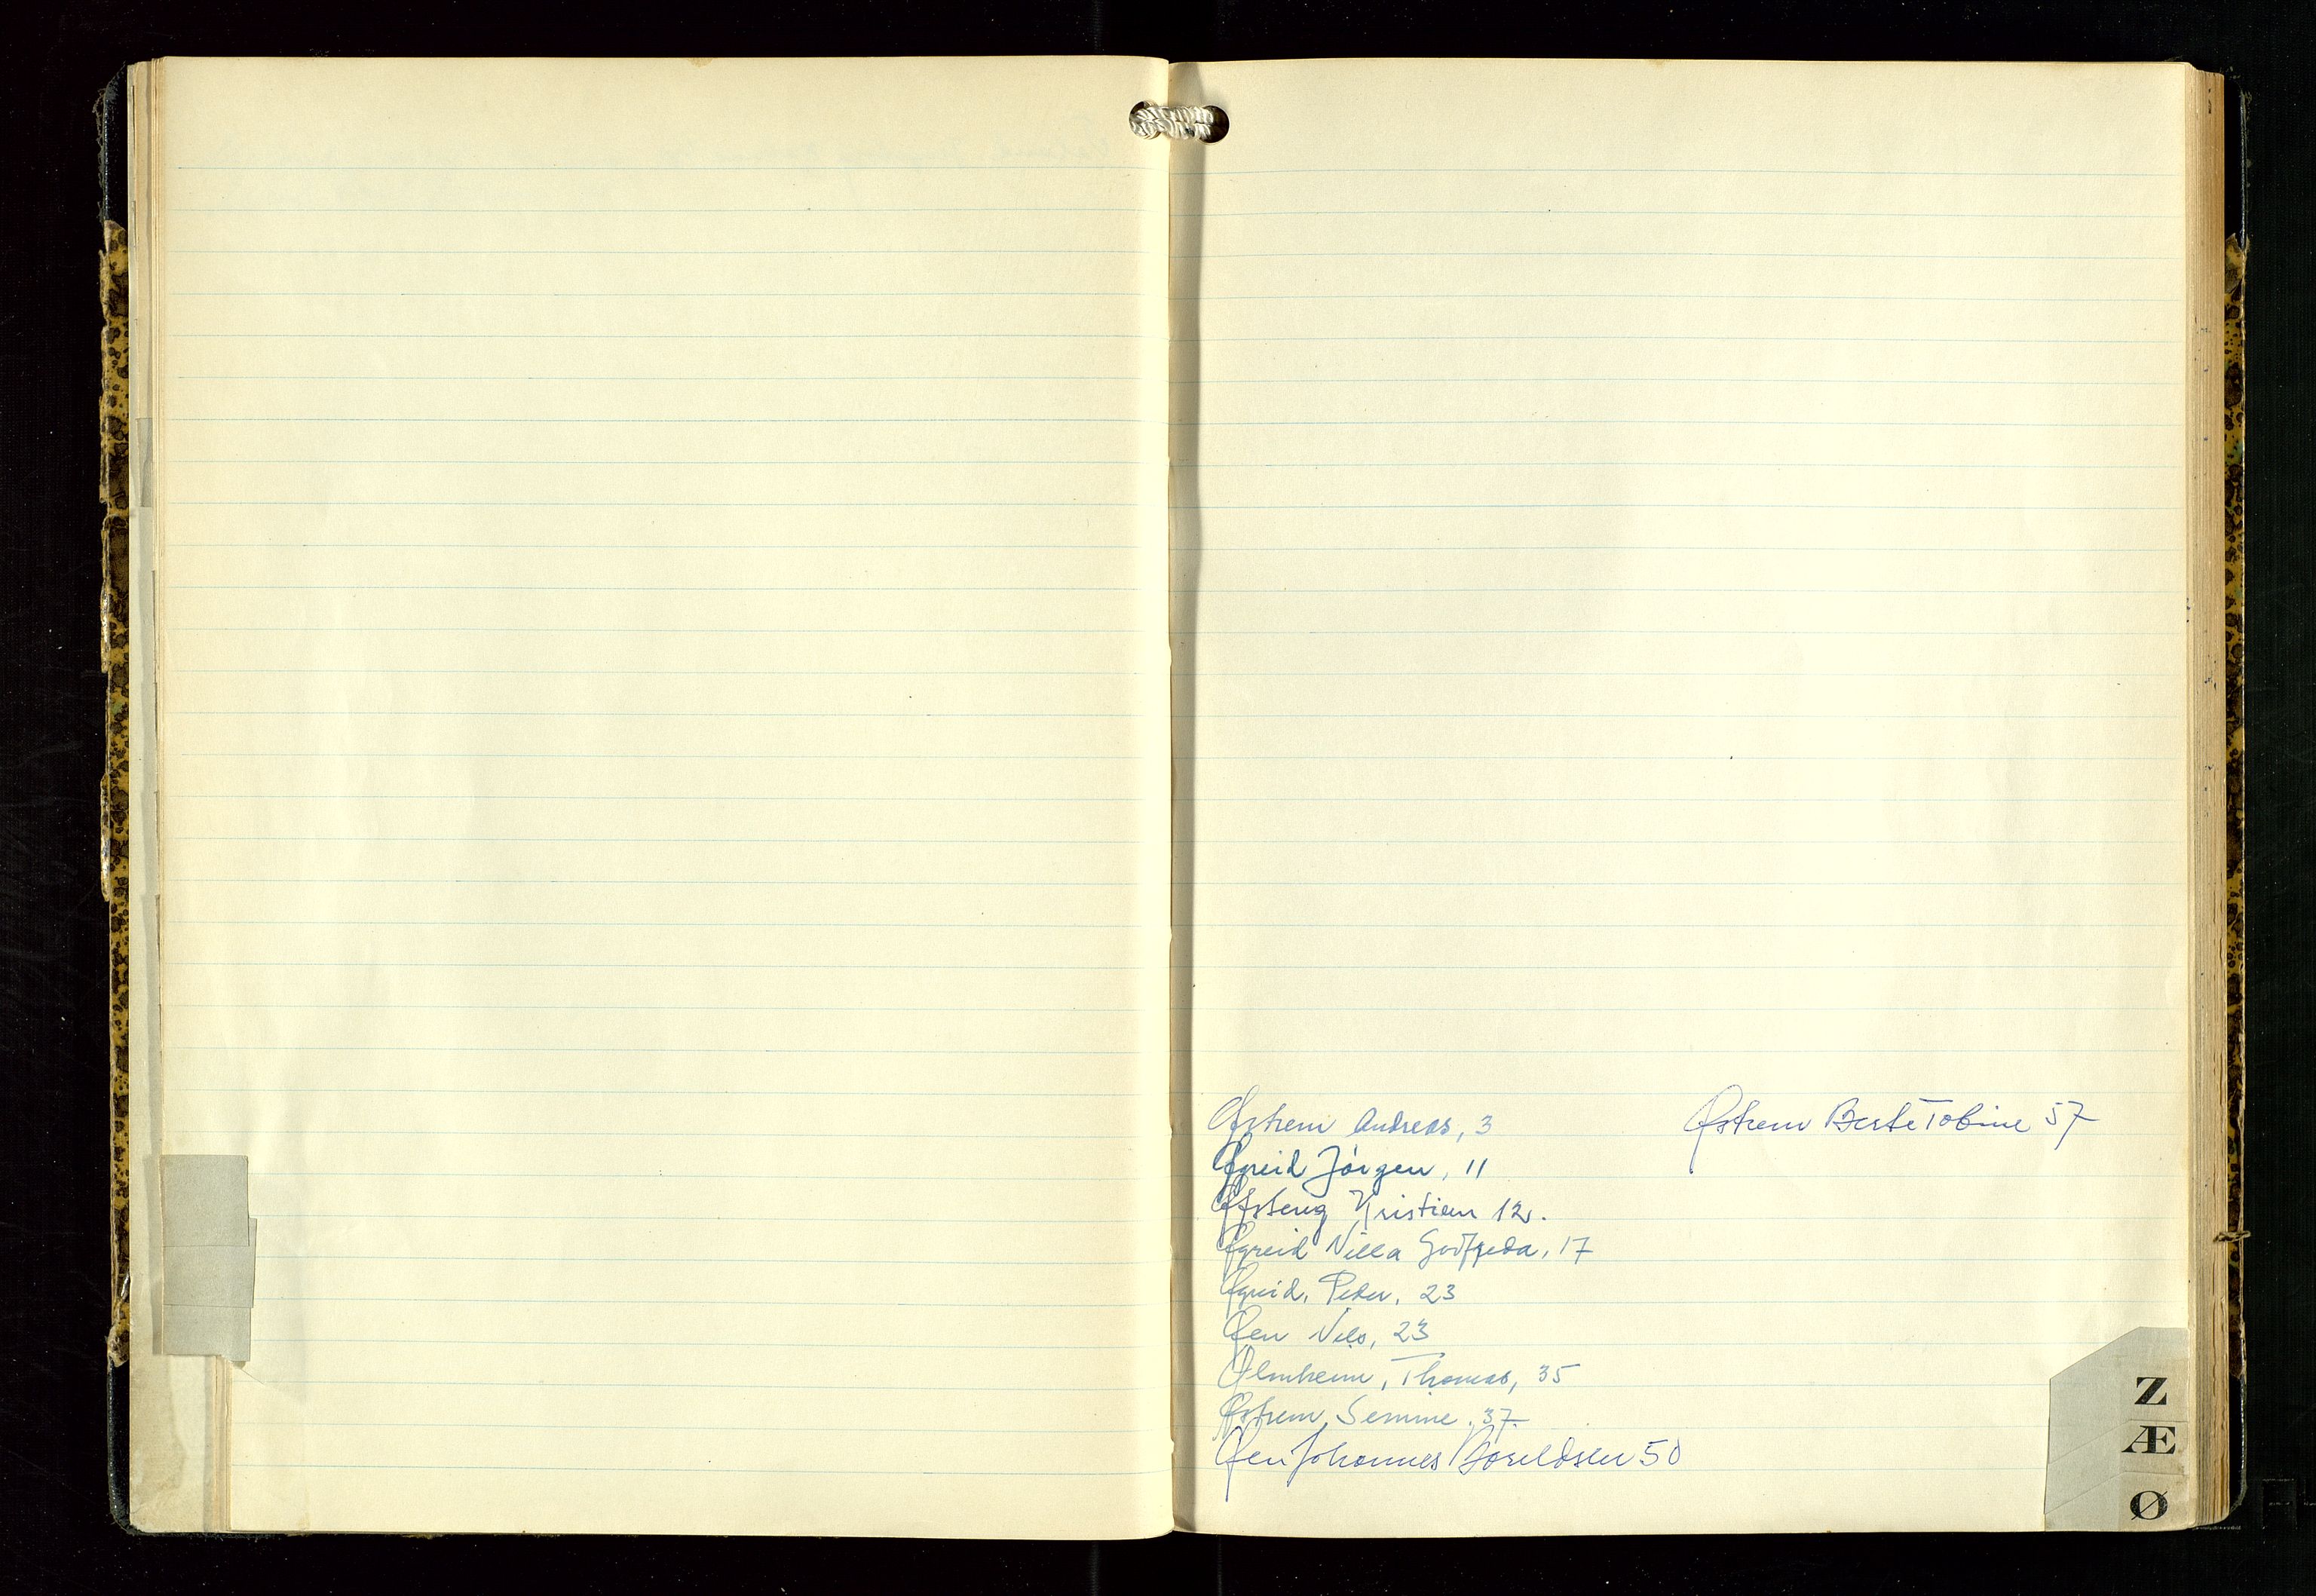 Østrem Andreas, 3
Øgreid Jörgen, 11
Østeng Kristian 12.
Øgreid Nilla Godfreda, 17
Øgreid, Peder, 23
Øen Nils, 23
Ølmheim, Thomas, 35
Østrem, Semine, 37
Øen Johannes Baraldsen 50
Østrem Berte Tobine 57
Z
Æ
Ø